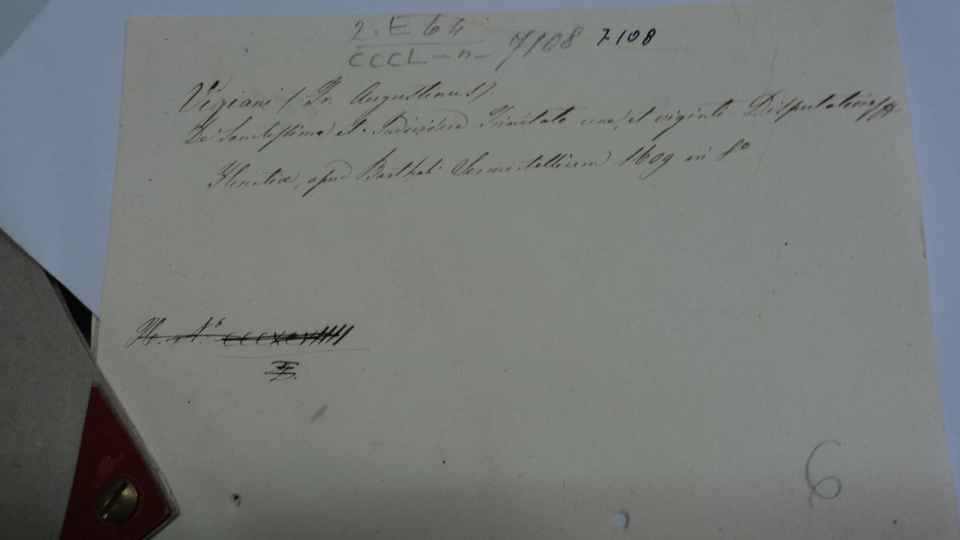 2. E 64
CCCL - n - 7108 7108
Vigiani (Fr. Augustinus).
De Sanctissima et Individua Trinitate una, et viginti Disputationes
Venetiæ, apud Barthol. 1609 in 8º
CCCXCVIIII
6